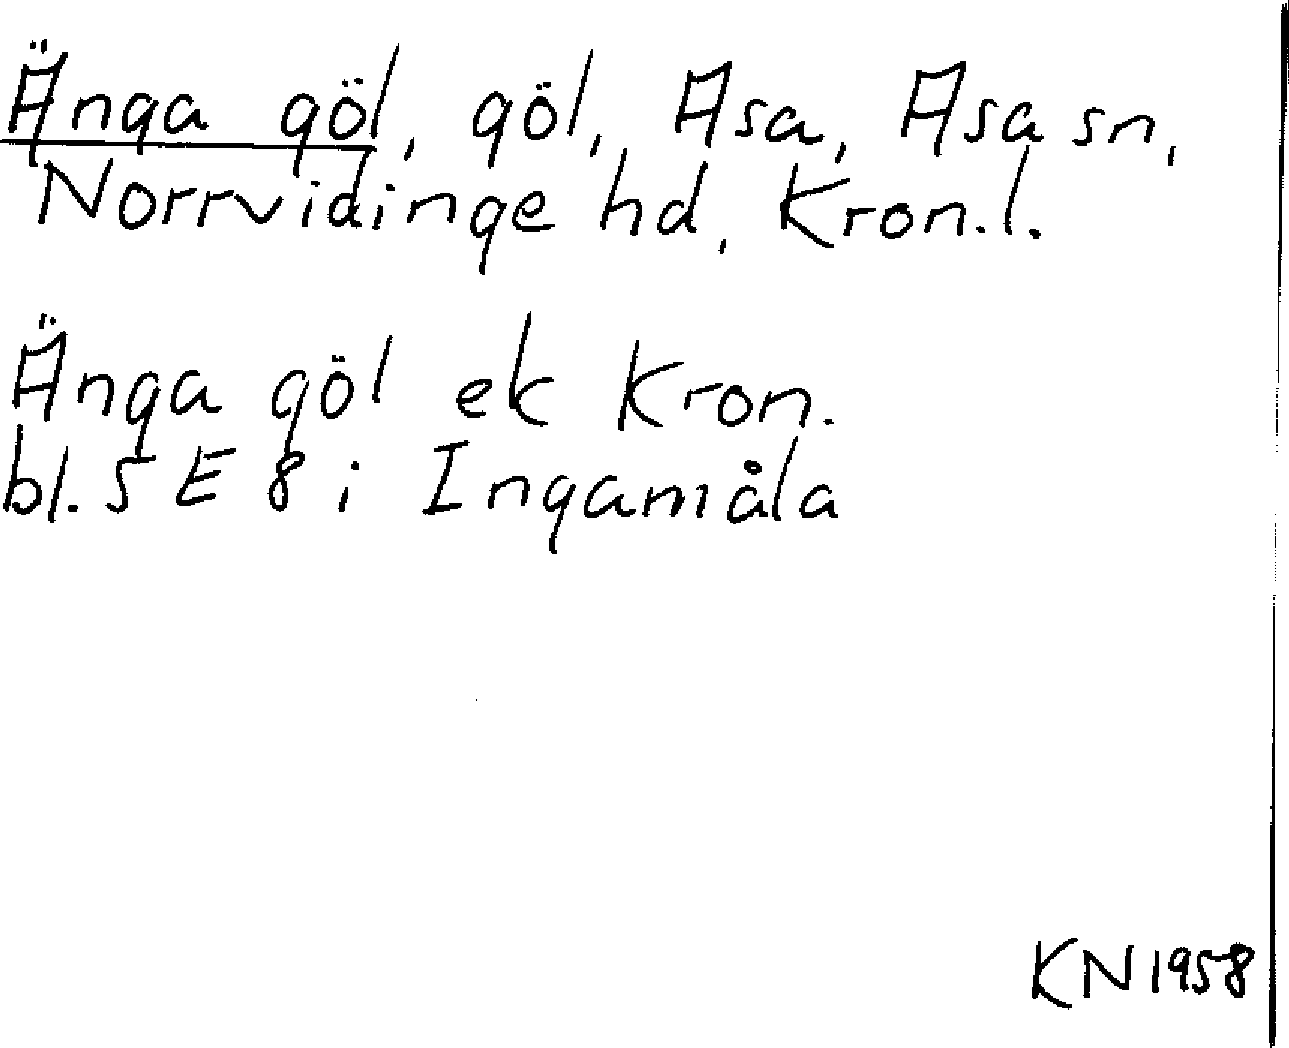 Änga göl, göl, Asa, Asa sn,
Norrvidinge hd, Kron.l.
Änga göl ek Kron.
bl. 5 E 8 i Ingamåla
KN 1958